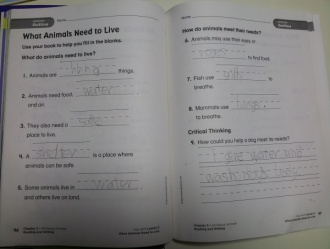 Outline
Name
What Animals Need to Live
Use your book to help you fill in the blanks.
What do animals need to live?
1. Animals are living things.
2. Animals need food, water
and air.
3. They also need a safe
place to live.
4. A shelter is a place where
animals can be safe.
5. Some animals live in water
and others live on land.
Outline
How do animals meet their needs?
6. Animals may use their eyes or
to find food.
7. Fish use gills to
breathe.
8. Mammals use lungs
to breathe.
Critical Thinking
9. How could you help a dog meet its needs?
give water and